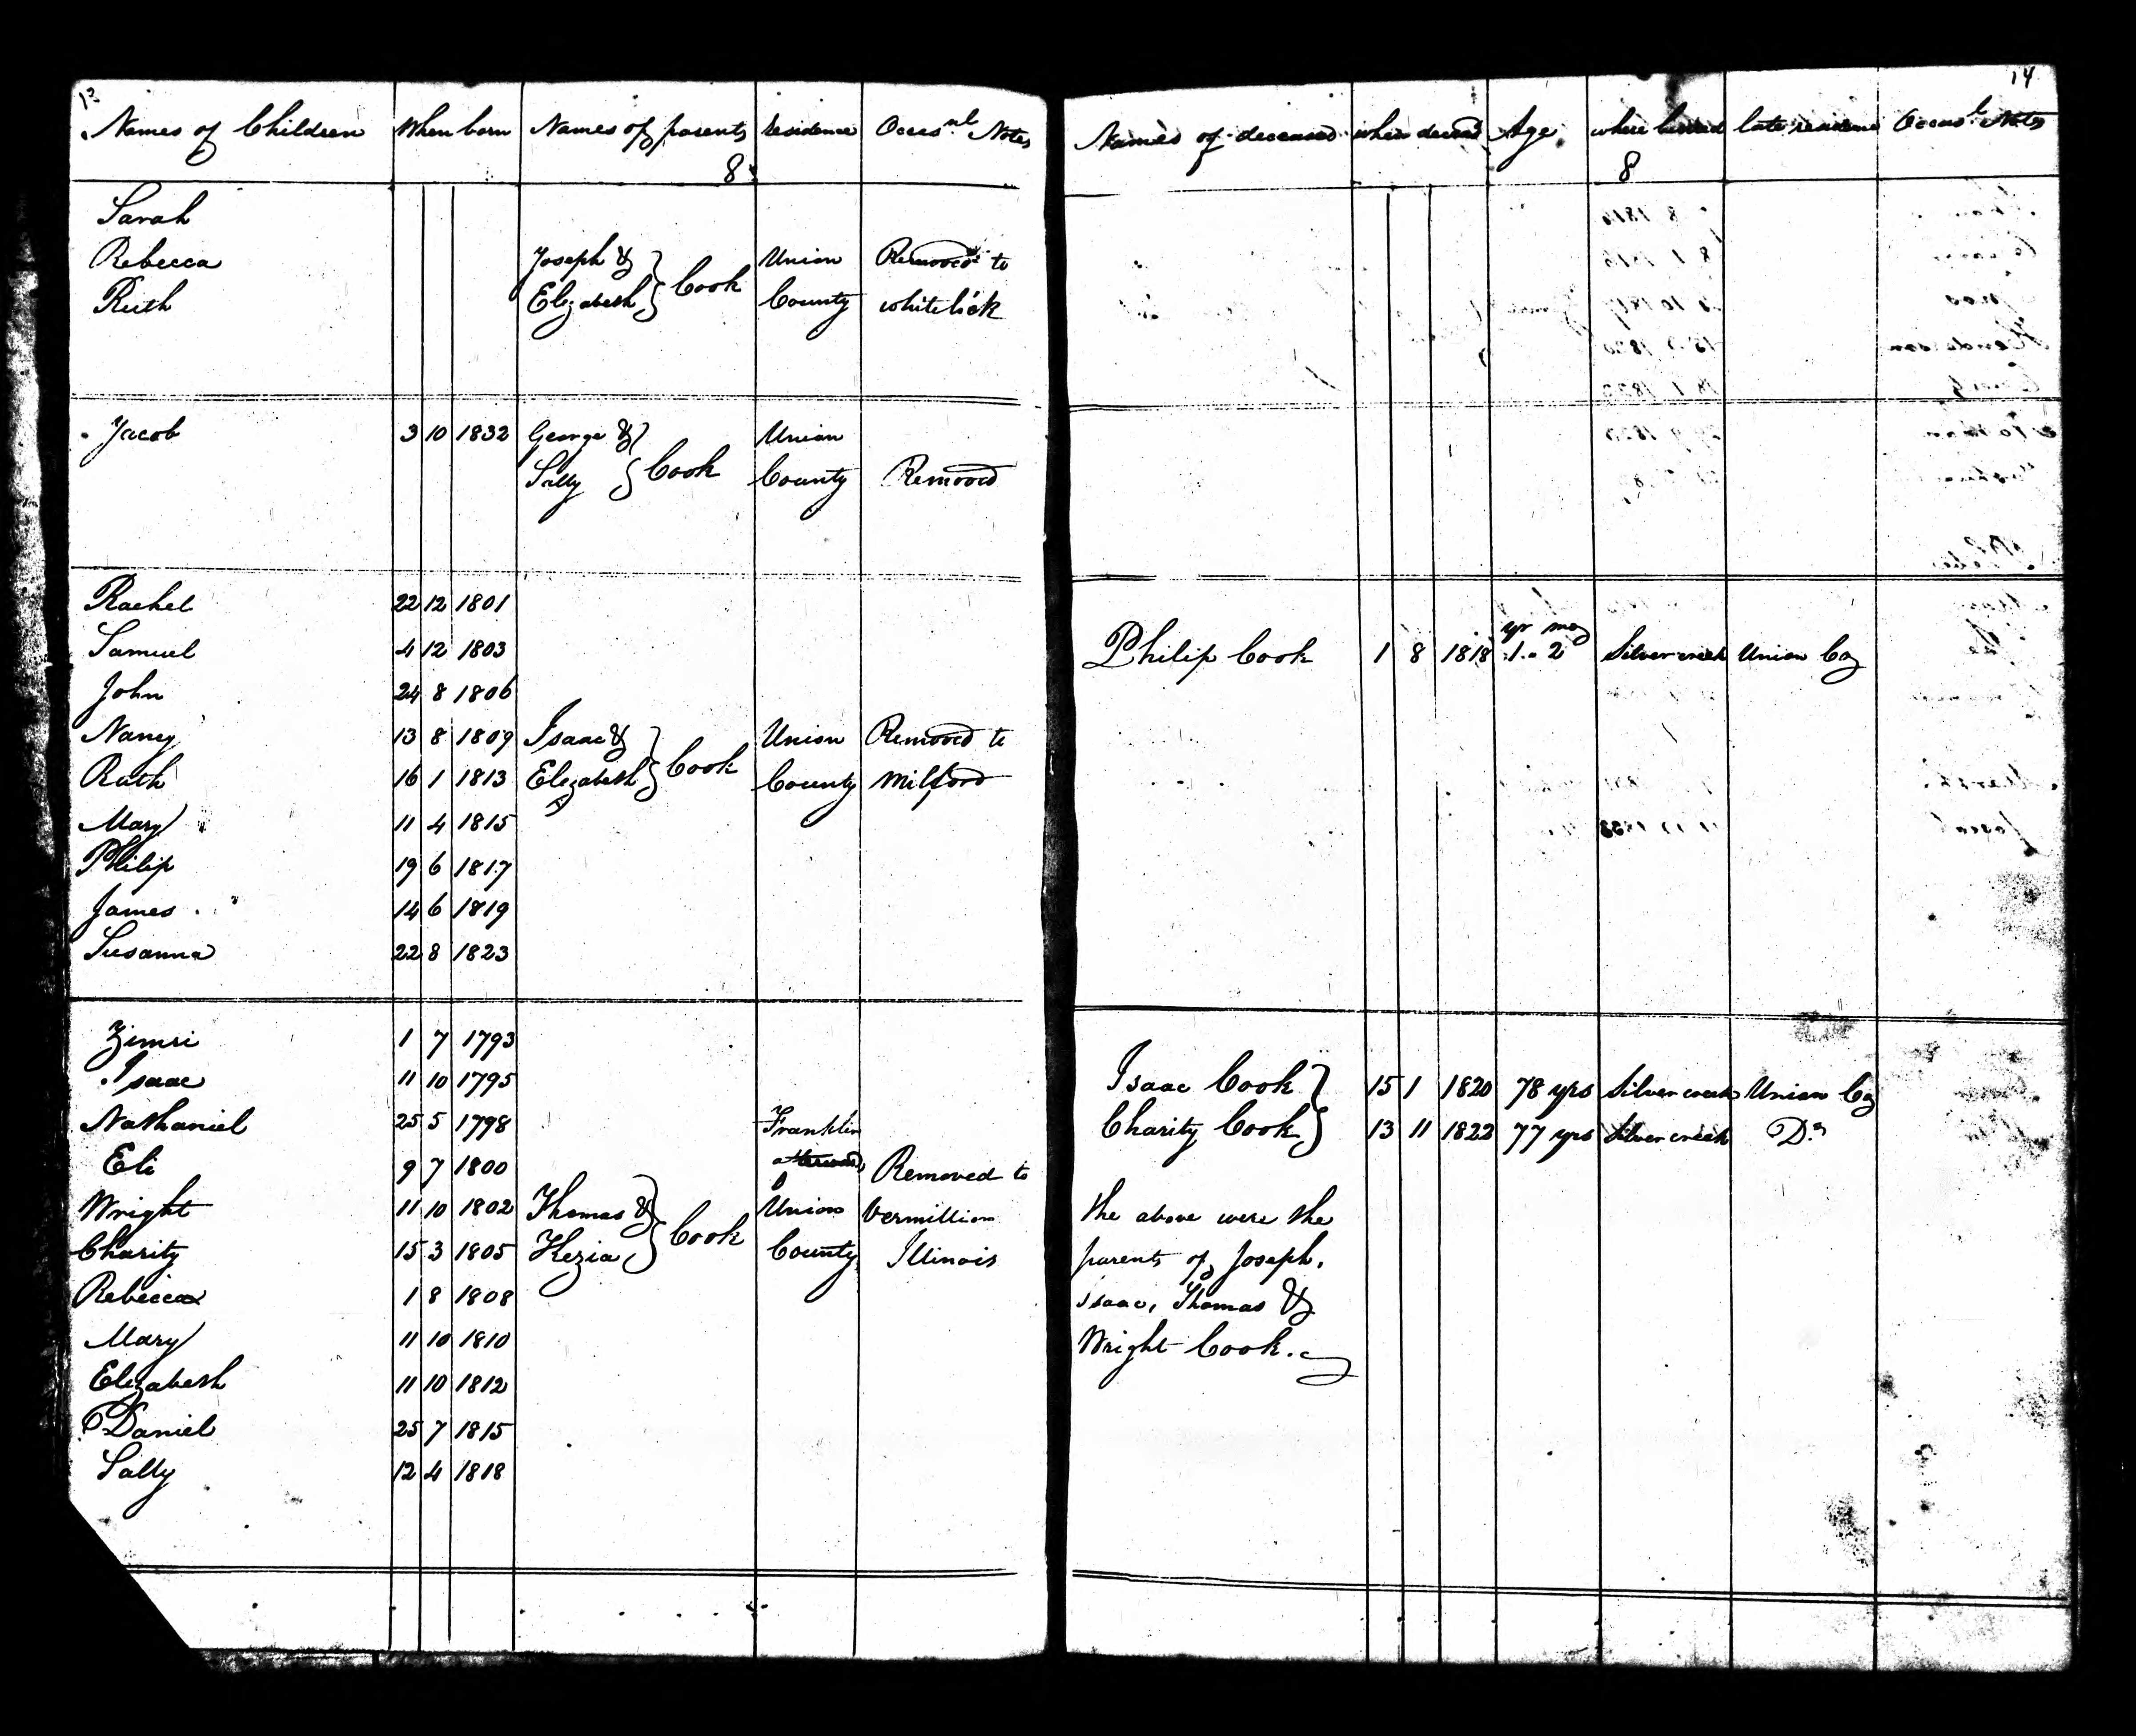 13
Names of Children When born Names of parents residence Occas.nl Notes
8
Sarah
Rebecca Joseph & Union Removed to
Ruth Elizabeth } Cook County whitelick
Jacob 3 10 1832 George & Union
Sally } Cook County Removed
Rachel 22 12 1801
Samuel 4 12 1803
John 24 8 1806
Nancy 13 8 1809 Isaac & Union Removed to
Ruth 16 1 1813 Elizabeth } Cook County Milford
Mary 11 4 1815
Philip 19 6 1817
James 14 6 1819
Susanna 22 8 1823
Zimri 1 7 1793
Isaac 11 10 1795
Nathaniel 25 5 1798 Franklin
Eli 9 7 1800 afterwards Removed to
Wright 11 10 1802 Thomas & Union Vermillion
Charity 15 3 1805 Kezia } Cook County Illinois
Rebecca 1 8 1808
Mary 11 10 1810
Elizabeth 11 10 1812
Daniel 25 7 1815
Sally 12 4 1818
14
Names of deceased when deceasd Age where buried late residence Occas.l Notes
8
yr mo
Philip Cook 1 8 1818 1 - 2 Silver creek Union Co
Isaac Cook } 15 1 1820 78 yrs Silver creek Union Co
Charity Cook } 13 11 1822 77 yrs Silver creek Do
the above were the
parents of Joseph,
Isaac, Thomas &
Wright Cook.